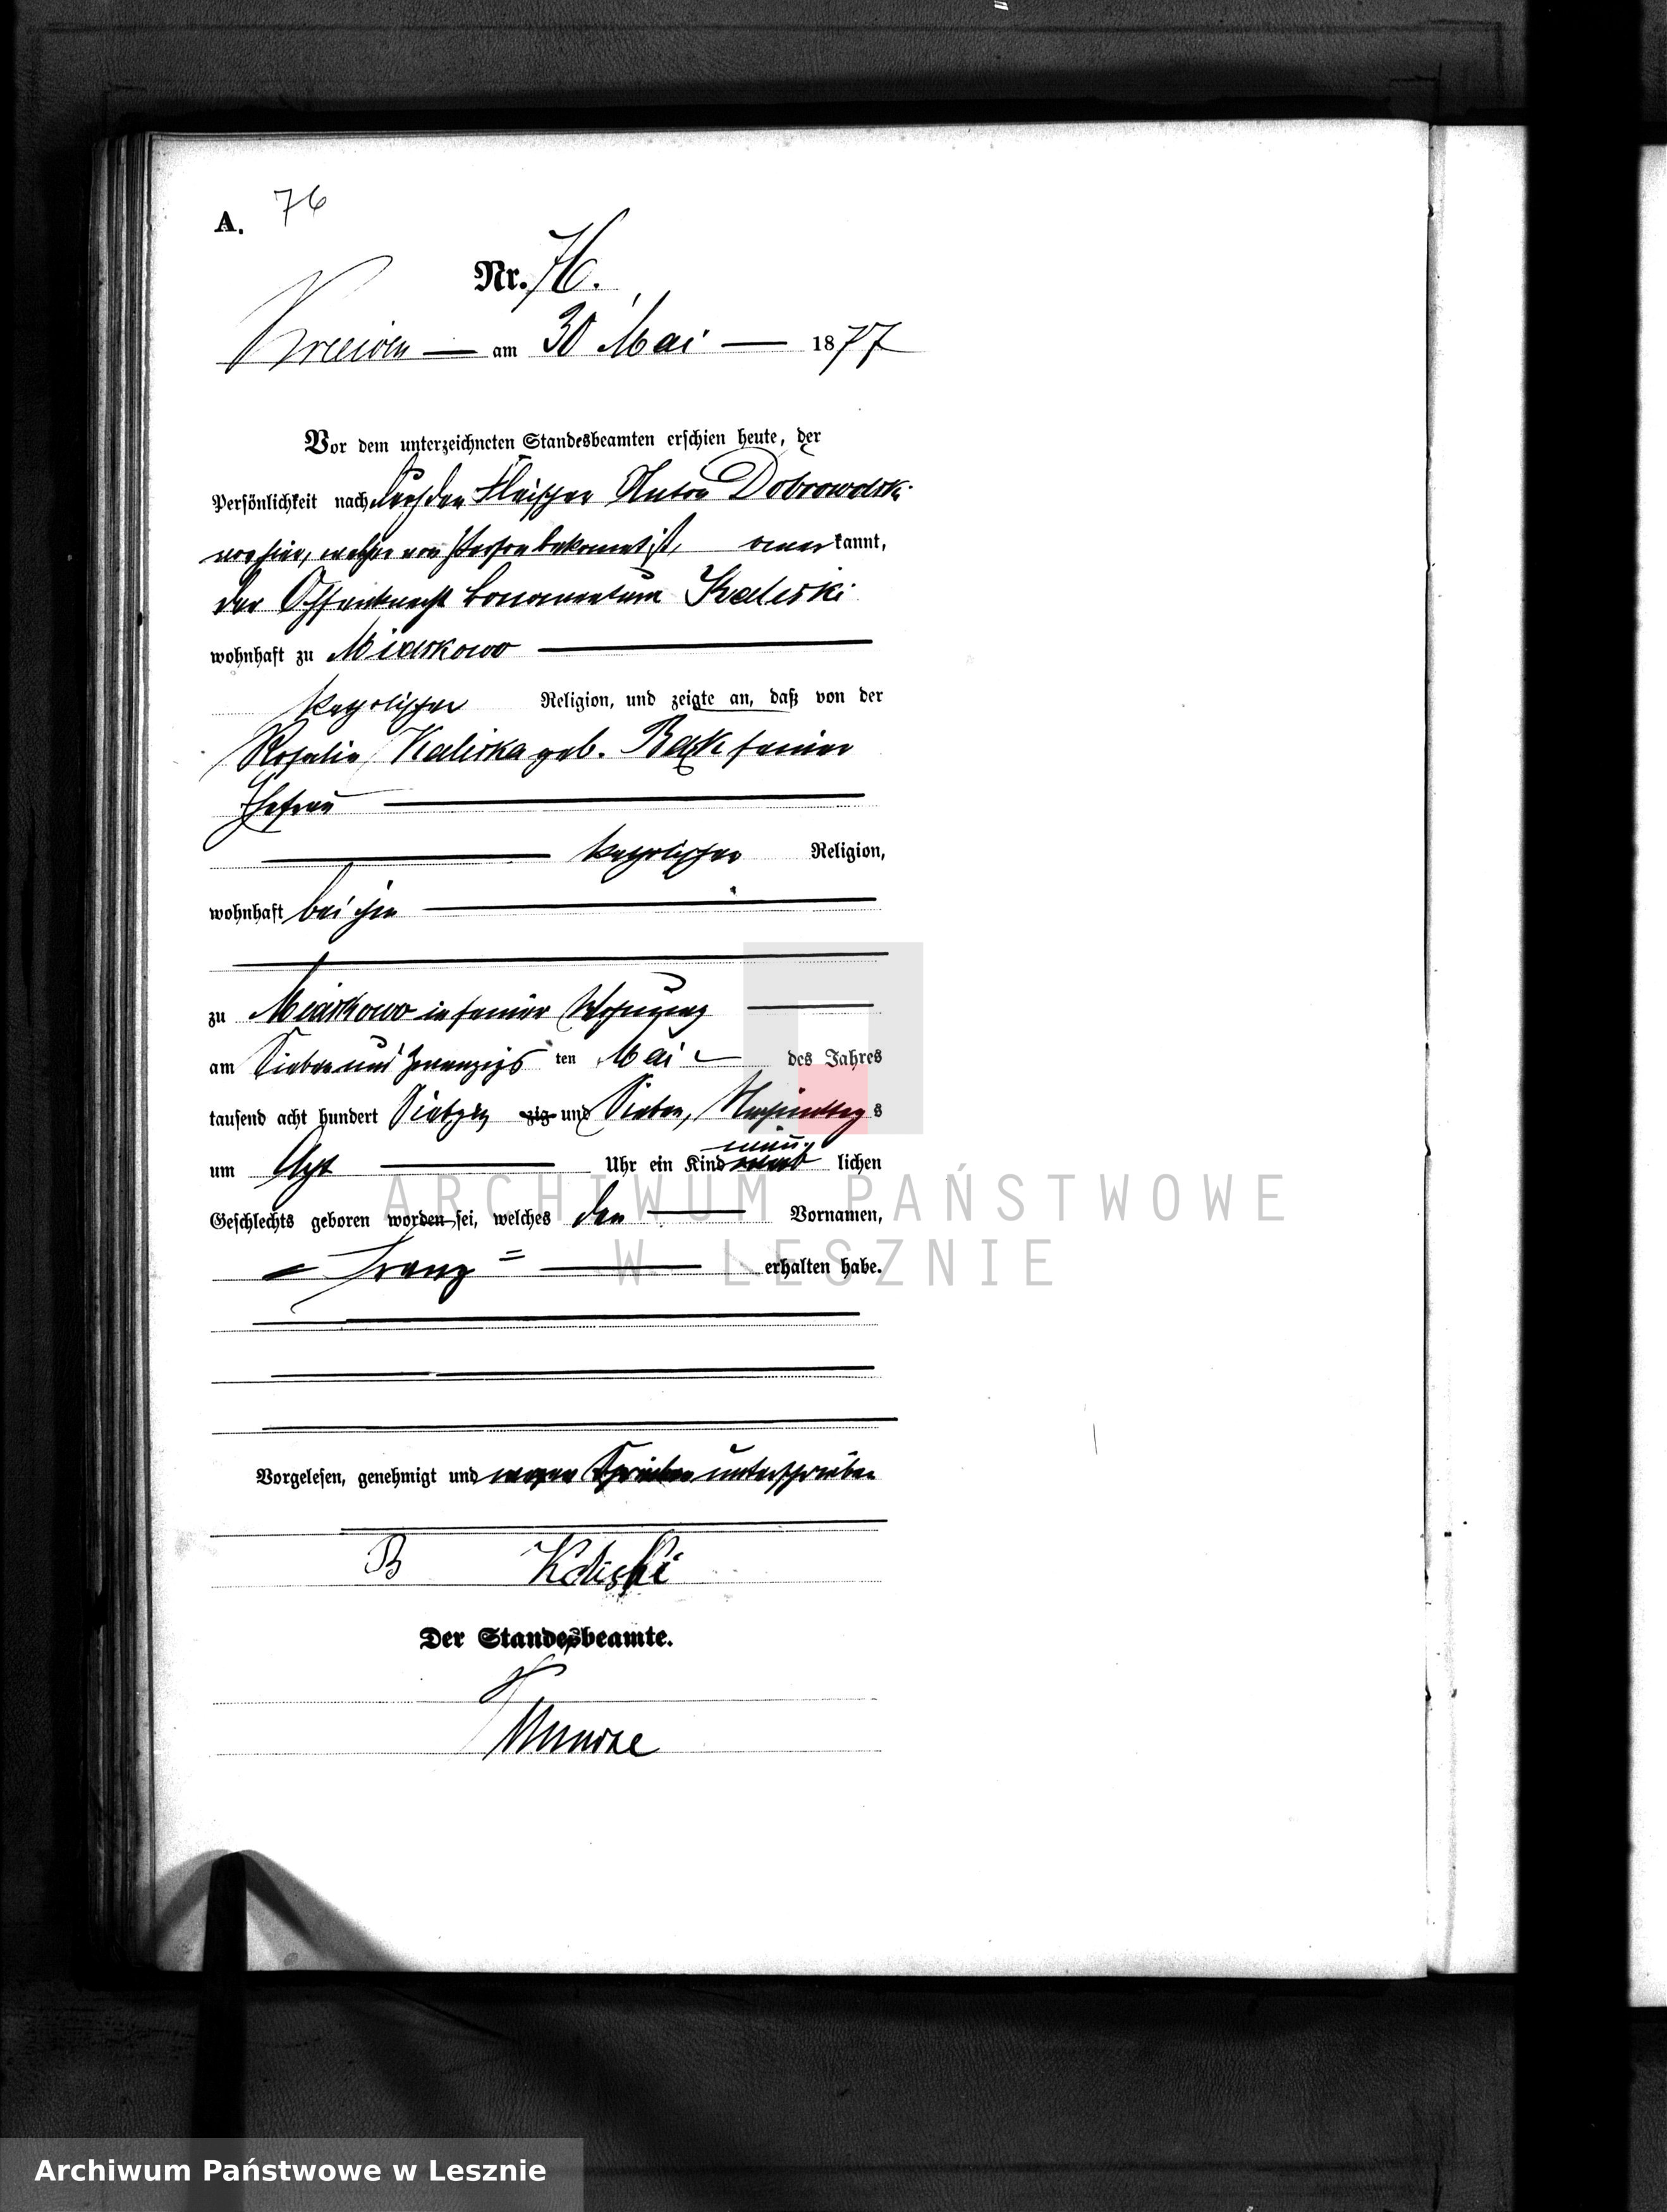 A. 76
Nr. 76.
Kriewen — am 30 Mai — 1877
Vor dem unterzeichneten Standesbeamten erschien heute, der
Persönlichkeit nach durch den Fleischer Anton Dobrowolski
von hier, welcher von Person bekannt ist, anerkannt,
der Ochsenknecht Bonaventura Kaliski
wohnhaft zu Miaskowo
katholischer Religion, und zeigte an, daß von der
Rosalie Kaliska geb. Bąk seiner
Ehefrau
katholischer Religion,
wohnhaft bei ihm
zu Miaskowo in seiner Wohnung
am Sieben und zwanzigs ten Mai des Jahres
tausend acht hundert Siebzig zig und Sieben, Nachmittags
um Acht Uhr ein Kind männ lichen
Geschlechts geboren worden sei, welches den Vornamen,
= Franz = erhalten habe.
Vorgelesen, genehmigt und unterschrieben
B Kaliski
Der Standesbeamte.
ARCHIWUM PAŃSTWOWE
W LESZNIE
Archiwum Państwowe w Lesznie